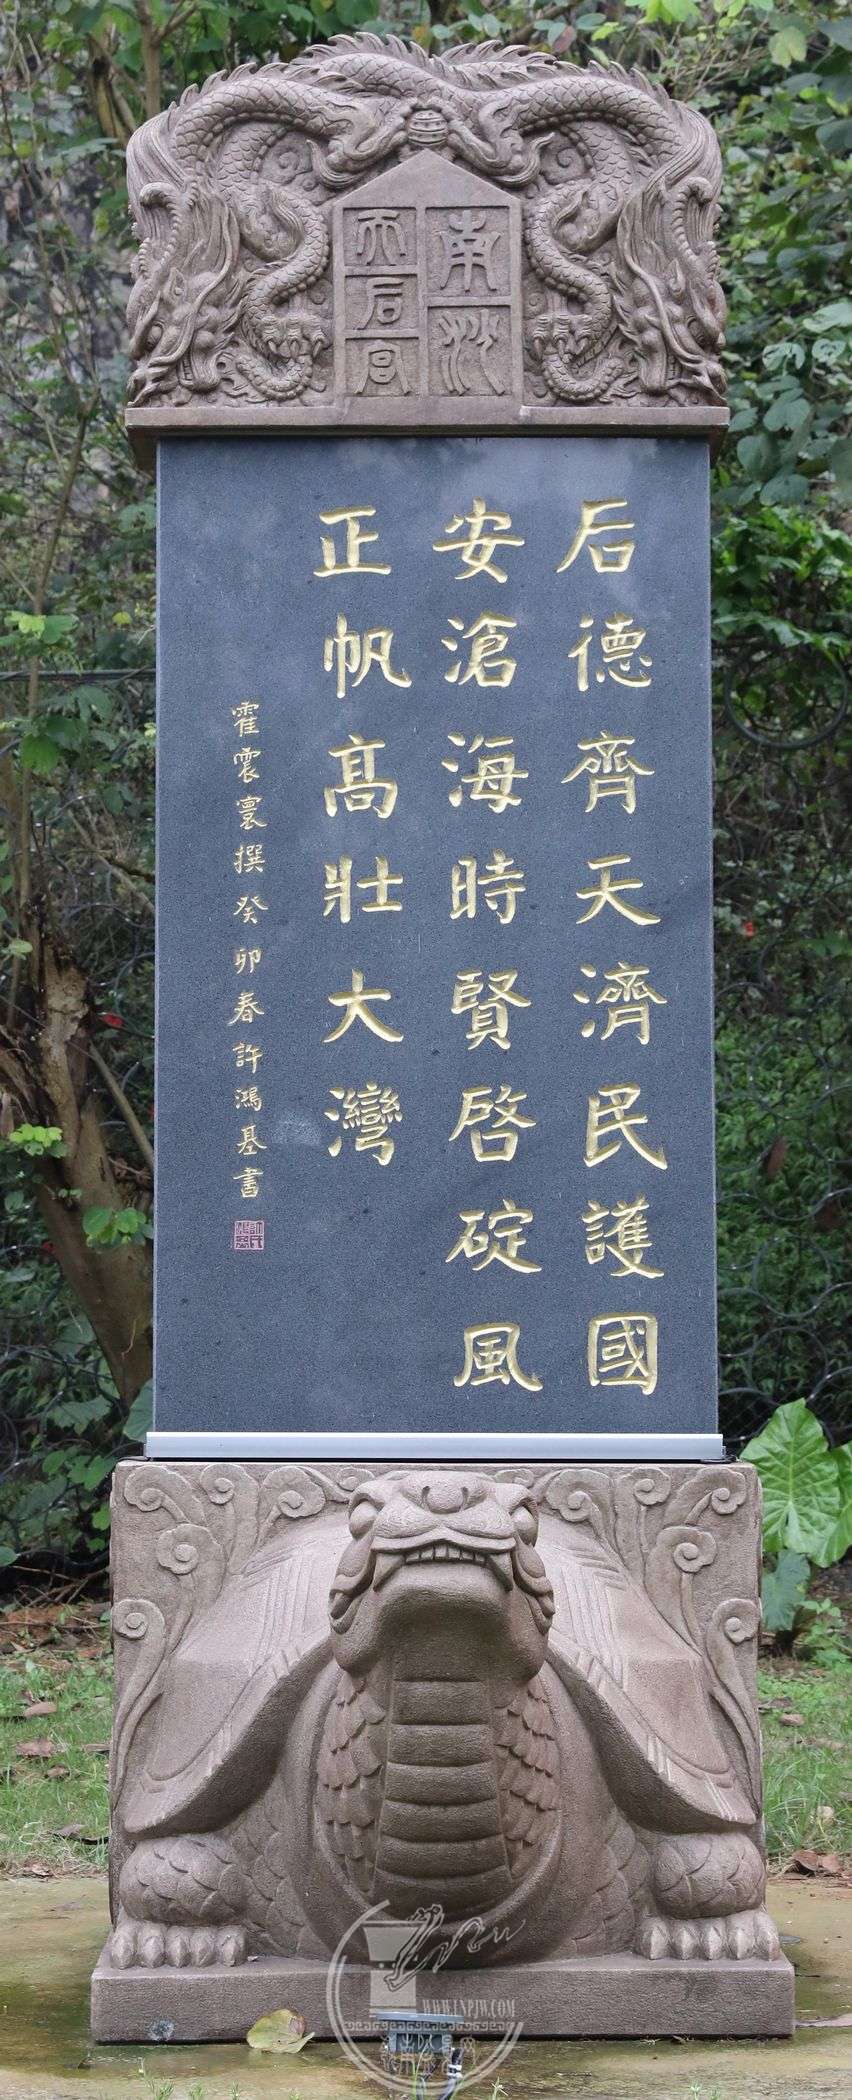 南沙
天后宮
后德齊天濟民護國
安滄海時賢啓碇風
正帆高壯大灣
霍震寰撰癸卯春許鴻基書
WWW.LNPJW.COM